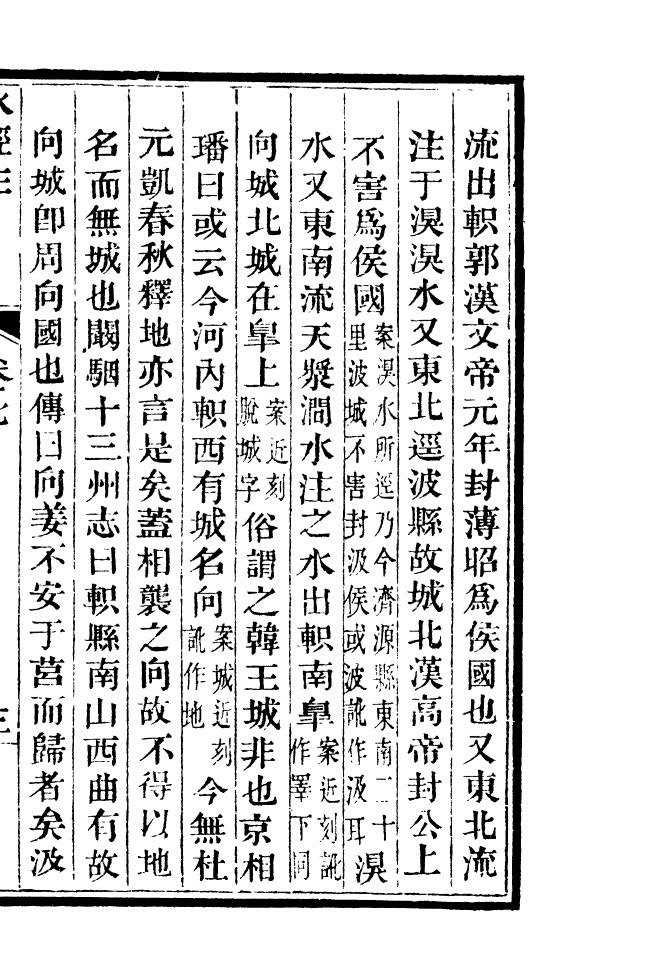 流出軹郭漢文帝元年封薄昭爲侯國也又東北流
注于湨湨水又東北逕波縣故城北漢高帝封公上
不害爲侯國案湨水所逕乃今濟源縣東南二十里波城不害封汲侯或波訛作汲耳湨
水又東南流天漿澗水注之水出軹南臯案近刻訛作澤下同
向城北城在臯上案近刻脫城字俗謂之韓王城非也京相
璠曰或云今河內軹西有城名向案城近刻訛作地今無杜
元凱春秋釋地亦言是矣蓋相襲之向故不得以地
名而無城也闞駰十三州志曰軹縣南山西曲有故
向城卽周向國也傳曰向姜不安于莒而歸者矣汲
水經注
卷七
三